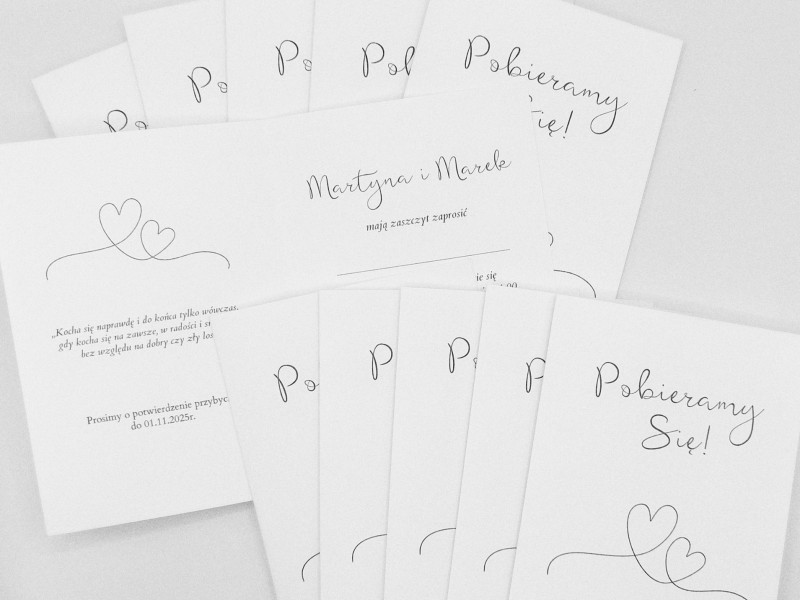 Po
Po
Po
Pob
Pobieramy
się!
Martyna i Marek
mają zaszczyt zaprosić
ie się
„Kocha się naprawdę i do końca tylko wówczas,
gdy kocha się na zawsze, w radości i
bez względu na dobry czy zły los
Prosimy o potwierdzenie
do 01.11.2025r.
Po
P
P
P
Pobieramy
Się!